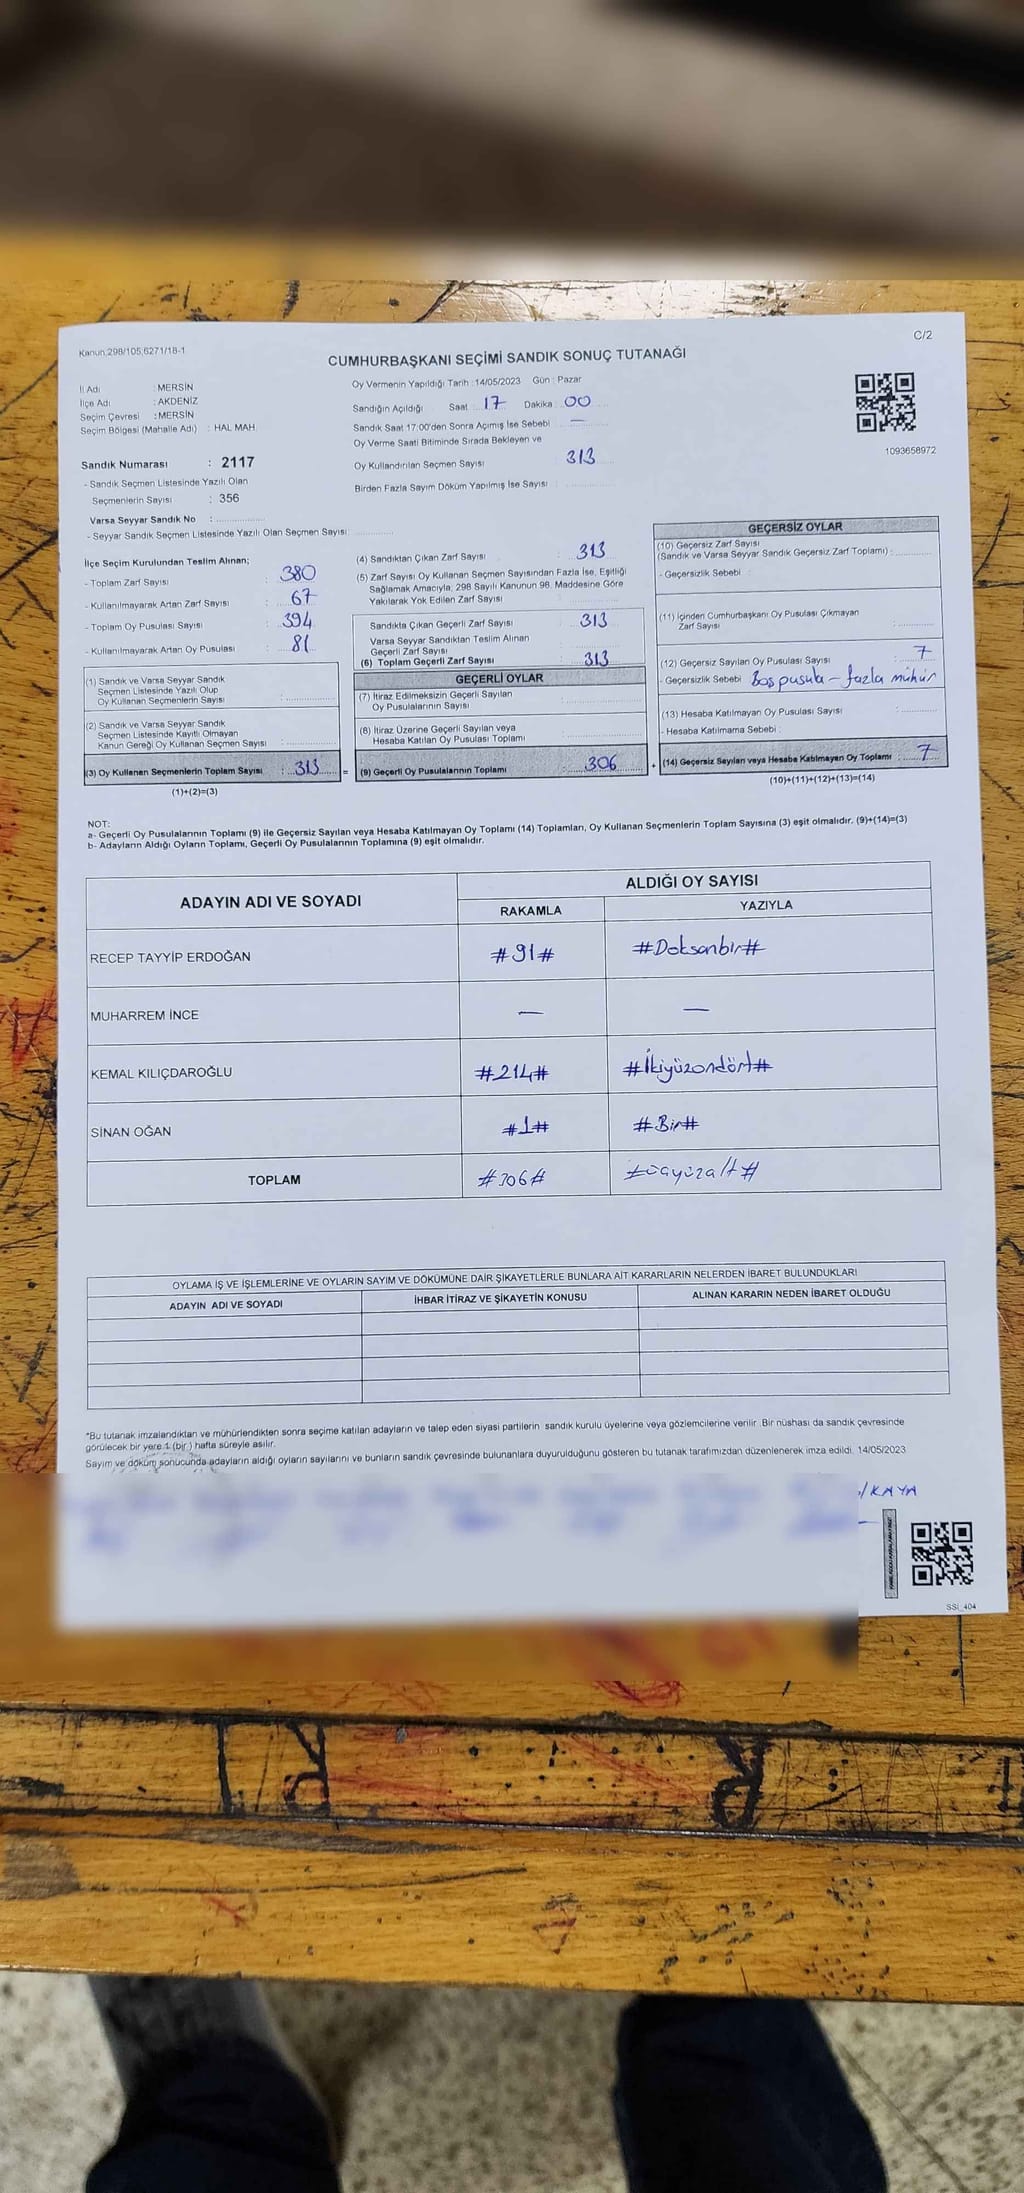 Kanun:298/105;6271/18-1
C/2
CUMHURBAŞKANI SEÇİMİ SANDIK SONUÇ TUTANAĞI
İl Adı : MERSİN
İlçe Adı : AKDENİZ
Seçim Çevresi : MERSİN
Seçim Bölgesi (Mahalle Adı) : HAL MAH.
Sandık Numarası : 2117
- Sandık Seçmen Listesinde Yazılı Olan
Seçmenlerin Sayısı : 356
Varsa Seyyar Sandık No :
- Seyyar Sandık Seçmen Listesinde Yazılı Olan Seçmen Sayısı:
Oy Vermenin Yapıldığı Tarih :14/05/2023 Gün : Pazar
Sandığın Açıldığı Saat 17 Dakika : 00
Sandık Saat 17:00'den Sonra Açımış İse Sebebi : —
Oy Verme Saati Bitiminde Sırada Bekleyen ve
Oy Kullandırılan Seçmen Sayısı : 313
Birden Fazla Sayım Döküm Yapılmış İse Sayısı :
1093658972
İlçe Seçim Kurulundan Teslim Alınan;
- Toplam Zarf Sayısı : 380
- Kullanılmayarak Artan Zarf Sayısı : 67
- Toplam Oy Pusulası Sayısı : 394
- Kullanılmayarak Artan Oy Pusulası : 81
(1) Sandık ve Varsa Seyyar Sandık
Seçmen Listesinde Yazılı Olup
Oy Kullanan Seçmenlerin Sayısı :
(2) Sandık ve Varsa Seyyar Sandık
Seçmen Listesinde Kayıtlı Olmayan
Kanun Gereği Oy Kullanan Seçmen Sayısı :
(3) Oy Kullanan Seçmenlerin Toplam Sayısı : 313 =
(1)+(2)=(3)
(4) Sandıktan Çıkan Zarf Sayısı : 313
(5) Zarf Sayısı Oy Kullanan Seçmen Sayısından Fazla İse, Eşitliği
Sağlamak Amacıyla, 298 Sayılı Kanunun 98. Maddesine Göre
Yakılarak Yok Edilen Zarf Sayısı :
Sandıkta Çıkan Geçerli Zarf Sayısı : 313
Varsa Seyyar Sandıktan Teslim Alınan
Geçerli Zarf Sayısı
(6) Toplam Geçerli Zarf Sayısı : 313
GEÇERLİ OYLAR
(7) İtiraz Edilmeksizin Geçerli Sayılan
Oy Pusulalarının Sayısı :
(8) İtiraz Üzerine Geçerli Sayılan veya
Hesaba Katılan Oy Pusulası Toplamı :
(9) Geçerli Oy Pusulalarının Toplamı : 306 +
GEÇERSİZ OYLAR
(10) Geçersiz Zarf Sayısı
(Sandık ve Varsa Seyyar Sandık Geçersiz Zarf Toplamı) :
- Geçersizlik Sebebi :
(11) İçinden Cumhurbaşkanı Oy Pusulası Çıkmayan
Zarf Sayısı :
(12) Geçersiz Sayılan Oy Pusulası Sayısı : 7
- Geçersizlik Sebebi : Boş pusula - fazla mühür
(13) Hesaba Katılmayan Oy Pusulası Sayısı :
- Hesaba Katılmama Sebebi :
(14) Geçersiz Sayılan veya Hesaba Katılmayan Oy Toplamı : 7
(10)+(11)+(12)+(13)=(14)
NOT:
a- Geçerli Oy Pusulalarının Toplamı (9) ile Geçersiz Sayılan veya Hesaba Katılmayan Oy Toplamı (14) Toplamları, Oy Kullanan Seçmenlerin Toplam Sayısına (3) eşit olmalıdır. (9)+(14)=(3)
b- Adayların Aldığı Oyların Toplamı, Geçerli Oy Pusulalarının Toplamına (9) eşit olmalıdır.
ADAYIN ADI VE SOYADI
ALDIĞI OY SAYISI
RAKAMLA YAZIYLA
RECEP TAYYİP ERDOĞAN #91# #Doksanbir#
MUHARREM İNCE — —
KEMAL KILIÇDAROĞLU #214# #İkiyüzondört#
SİNAN OĞAN #1# #Bir#
TOPLAM #306# #üçyüzaltı#
OYLAMA İŞ VE İŞLEMLERİNE VE OYLARIN SAYIM VE DÖKÜMÜNE DAİR ŞİKAYETLERLE BUNLARA AİT KARARLARIN NELERDEN İBARET BULUNDUKLARI
ADAYIN ADI VE SOYADI İHBAR İTİRAZ VE ŞİKAYETİN KONUSU ALINAN KARARIN NEDEN İBARET OLDUĞU
*Bu tutanak imzalandıktan ve mühürlendikten sonra seçime katılan adayların ve talep eden siyasi partilerin sandık kurulu üyelerine veya gözlemcilerine verilir. Bir nüshası da sandık çevresinde
görülecek bir yere 1 (bir) hafta süreyle asılır.
Sayım ve döküm sonucunda adayların aldığı oyların sayılarını ve bunların sandık çevresinde bulunanlara duyurulduğunu gösteren bu tutanak tarafımızdan düzenlenerek imza edildi. 14/05/2023
KAYA
SSİ_404